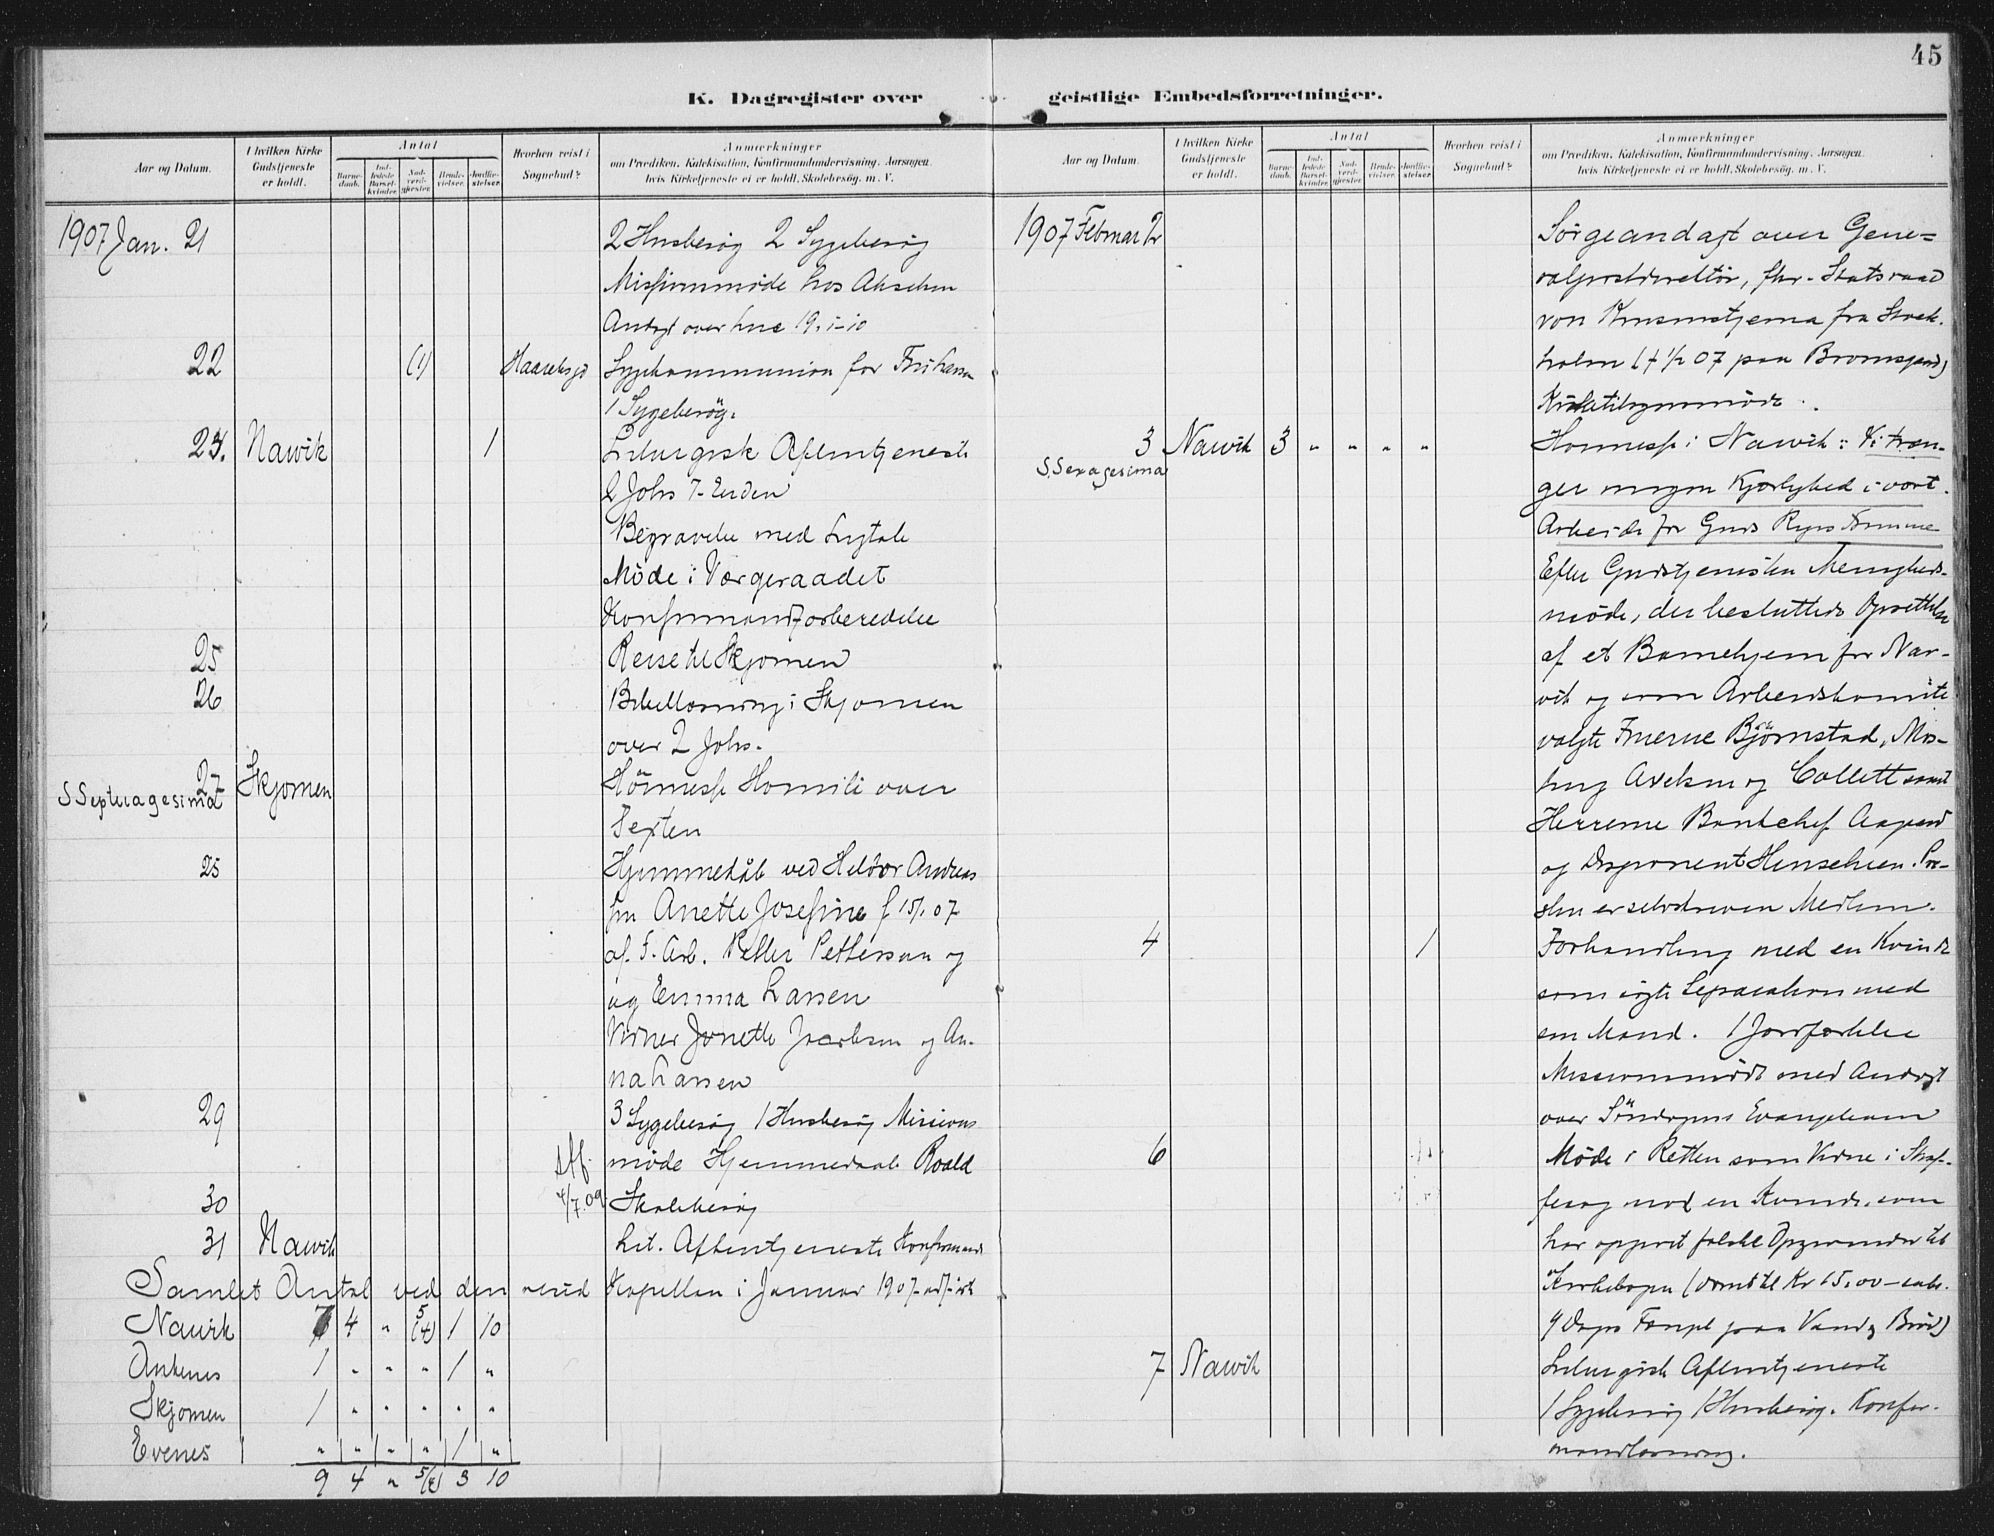 45
K. Dagregister over geistlige Embedsforretninger.
Aar og Datum.
I hvilken Kirke Gudstjeneste er holdt.
Antal
Barne-daab.
Ind-ledede Barsel-kvinder.
Nad-verd-gjester.
Brude-vielser.
Jordfæ-stelser.
Hvorhen reist i Sognebud?
Anmærkninger
om Prædiken, Katekisation, Konfirmandundervisning, Aarsagen,
hvis Kirketjeneste ei er holdt, Skolebesøg, m. V.
1907 Jan. 21 2 Husbesøg 2 Sygebesøg
Missionsmøde hos
over Luc 19. 1-10
22 (1) Sygekommunion for
1 Sygebesøg.
Narvik 1 Liturgisk Aftentjeneste
2 Johs
Begravelse med Ligtale
Møde i Værgeraadet
Konfirmandforberedelse
25 Reise til Skjomen
26 Bibellæsning i Skjomen
over 2 Johs.
27 Skjomen Homili over
S Septuagesima
Texten
25 Hjemmedåb ved
Anette Josefine f 15/1 07
af F. Arb. Petter Pettersen og
og Emma Larsen
Jonette Jacobsen og An-
na Larsen
29 3 Sygebesøg 1 Husbesøg Missions
møde Hjemmedaab Roald
30 Skolebesøg
31 Narvik Lit. Aftentjeneste Konfirmand
Samlet Antal ved den Kapellan i Januar 1907
Narvik 7 4 " 5 (4) 1 10
Ankenes 1 " " " 1 "
Skjomen 1 " " " " "
Evenes " " " " 1 "
9 4 " 3 10
Aar og Datum.
I hvilken Kirke Gudstjeneste er holdt.
Antal
Barne-daab.
Ind-ledede Barsel-kvinder.
Nad-verd-gjester.
Brude-vielser.
Jordfæ-stelser.
Hvorhen reist i Sognebud?
Anmærkninger
om Prædiken, Katekisation, Konfirmandundervisning, Aarsagen,
hvis Kirketjeneste ei er holdt, Skolebesøg, m. V.
1907 Februar 2 Sørgeandagt over Gene-
ralpostdirektør, fhv. Statsraad
von Krusenstjerna fra Stock-
holm († 1/2 07 paa
3 Narvik 3 " " " " Narvik: Vi træn-
S. Sexagesima
ger megen Kjærlighed i vort
Arbeide for Guds Riges Fremme
Efter Gudstjenesten Menigheds-
møde, der besluttede Oprettelse
af et Barnehjem for Nar-
vik og som Arbeidskomite
valgte Fruerne Bjørnstad,
Axelsen og Collett samt
Herrerne Bankchef
og Disponent
er selvskreven Medlem.
4 1 Forhandling med en Kvinde
som søgte Separation med
sin Mand. 1 Jordfæstelse
Missionsmøde med Andagt
over Søndagens Evangelium
6 Møde i Retten som Vidne i Straf-
fesag mod en Kvinde, som
har opgivet falske Opgivender til
Kirkebogen (dømt til Kr 15,00
4 Dages Fængsel paa Vand og Brød)
7 Narvik Liturgisk Aftentjeneste
1 Sygebesøg 1 Husbesøg. Konfir-
mandlæsning.